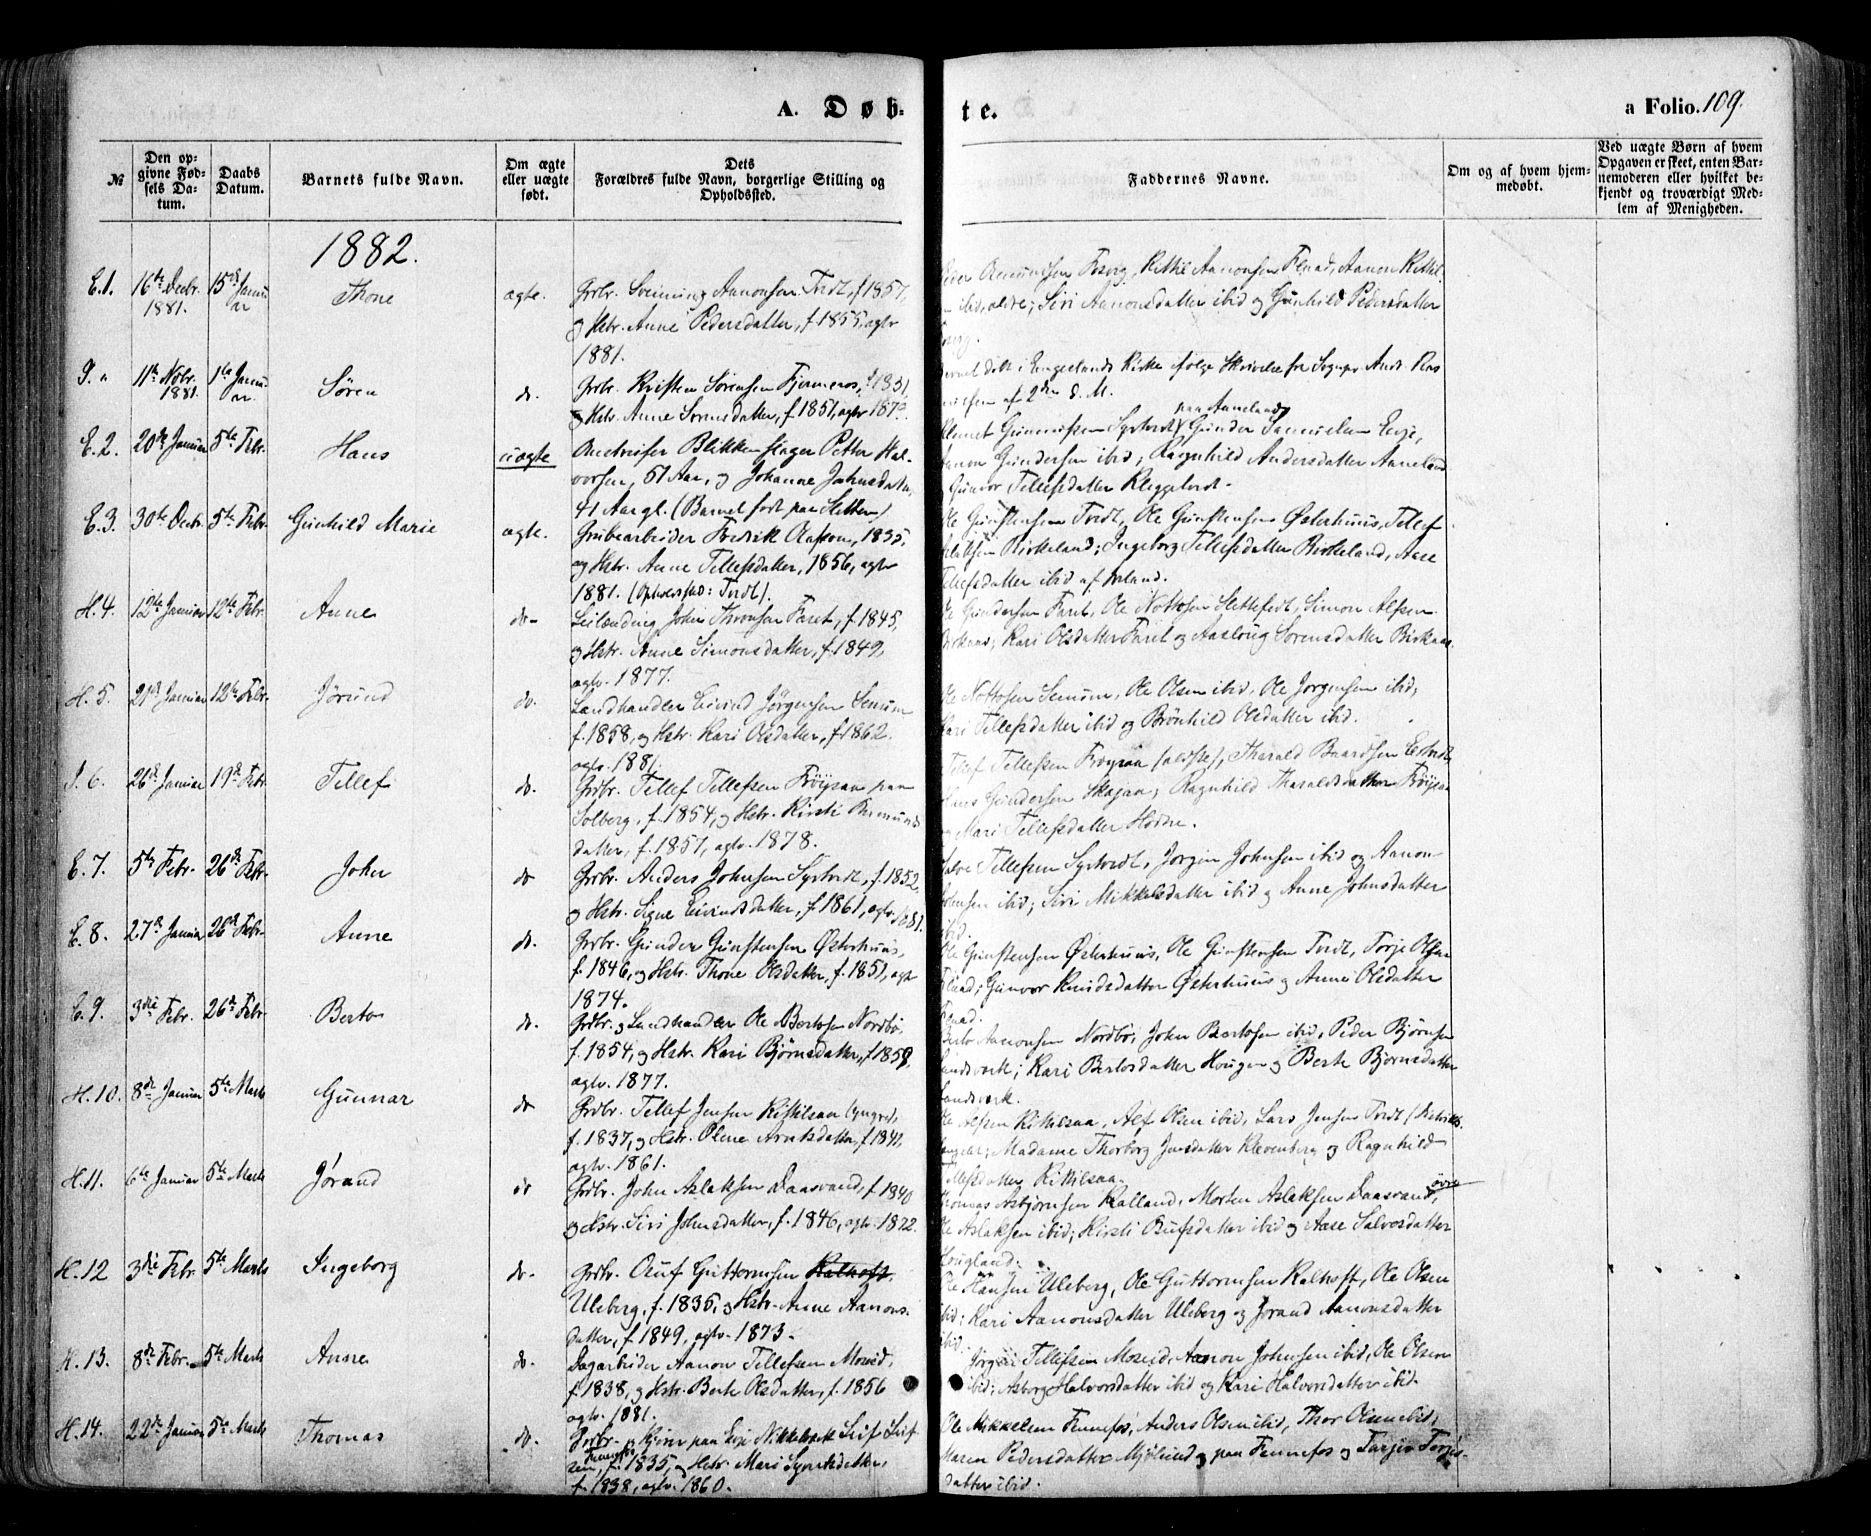 A. Døb-
te.
a Folio. 109.
№
Den op-
givne Fød-
sels Da-
tum.
Daabs
Datum.
Barnets fulde Navn.
Om ægte
eller uægte
født.
Dets
Forældres fulde Navn, borgerlige Stilling og
Opholdssted.
Faddernes Navne.
Om og af hvem hjem-
medøbt.
Ved uægte Børn af hvem
Opgaven er skeet, enten Bar-
nemoderen eller hvilket be-
kjendt og troværdigt Med-
lem af Menigheden.
1882.
E.1. 16de Decbr. 1881. 15de Januar Thone ægte.
Grbr. Sveinung Aanonsen Tvedt, f. 1857,
og Hstr. Anne Pedersdatter, f. 1855, agtv
1881.
Kittil Aanonsen Flaad, Aanon Kittil-
ibid, Siri Aanonsdatter ibid og Gunhild Pedersdatter
11te Novbr. 1881. 1ste Januar Søren do.
Grbr. Kristen Sørensen Fjermeros, f. 1851
og Hstr. Anne Sørensdatter, f. 1851, agtv 187
døbt i Engelands Kirke ifølge Skrivelse fra Sognepr.
af 2den d. M.
E.2. 20de Januar 5te Febr. Hans uægte
Blikkenslager Petter Hal-
vorsen, 51 Aar, og Johanne Johnsdatter,
41 Aar gl. (Barnet født paa Sletten)
Gunder Samuelsen Evje,
paa Aaneland
Gundersen ibid; Ragnhild Andersdatter Aaneland
Gunvor Tellefsdatter
E.3. 30te Decbr. 5te Febr. Gunhild Marie ægte.
Grubearbeider Fredrik Olafsson, 1835,
og Hstr. Anne Tellefsdatter, 1856, agtv
1881. (Opholdssted: Tvedt).
Ole Gunstensen Tvedt, Ole Gunstensen Østerhuus, Tellef
Birkeland; Ingeborg Tellefsdatter Birkeland, Aase
Tellefsdatter ibid af
H.4. 12te Januar 12te Febr. Anne do
Leilænding John Thronsen Faret, f. 1845,
og Hstr. Anne Simonsdatter, f. 1849,
agtv. 1877.
Gundersen Faret, Ole Nottosen Slettefedt, Simon Alfsen
Kari Olsdatter Faret og Aaslaug Sorensdatter Birknas
H.5. 21de Januar 12te Febr. Jørund do.
Landhandler Eivind Jørgensen Senum
f. 1858, og Hstr. Kari Olsdatter, f. 1862.
agtv. 1881.
Ole Nottosen Senum, Ole Olsen ibid, Ole Jørgensen ibid,
Kari Tellefsdatter ibid og Brønhild Olsdatter ibid.
6. 26de Januar 19de Febr. Tellef do.
Grbr. Tellef Tellefsen Frøysaa paa
Solberg, f. 1854, og Hstr. Kirsti
datter, f. 1857, agtv. 1878.
Tellef Tellefsen Frøysaa (ældste), Tharald Baardsen
Hans Gundersen Skajaa; Ragnhild Tharaldsdatter Frøysaa
og Mari Tellefsdatter Hodne.
E.7. 5te Febr. 26de Febr. John do
Grbr. Anders Johnsen Syrtvedt, f. 1852,
og Hstr. Signe Eivindsdatter, f. 1861, agtv. 1881.
Salve Tellefsen Syrtvedt, Jørgen Johnsen ibid og Aanon
Johnsen ibid; Siri Mikkelsdatter ibid og Anne Johnsdatter
ibid.
E.8. 27de Januar 26de Febr. Anne do.
Grbr. Gunder Gunstensen Østerhuus,
f. 1846, og Hstr. Thone Olsdatter, f. 1851, agtv
1874.
Ole Gunstensen Østerhuus, Ole Gunstensen Tvedt, Torje Olsen
Gunvor Knudsdatter Østerhuus og Anne Olsdatter
E.9. 3die Febr. 26de Febr. Berto do.
Grbr. og Landhandler Ole Bertosen Nordbø,
f. 1854, og Hstr. Kari Bjørnsdatter, f. 1859,
agtv. 1877.
Berto Aanonsen Nordbø, John Bertosen ibid, Peder Bjørnsen
Landsverk; Kari Bertosdatter Hougen og Berte Bjørnsdatter
Landsverk.
H.10. 8de Januar 5te Marts Gunnar do
Grbr. Tellef Jensen Kittilsaa (yngre),
f. 1837, og Hstr. Olene Arntsdatter, f. 1841,
agtv. 1861.
Alfsen Kittilsaa, Alf Olsen ibid, Lars Jensen Tvedt
Madame Thorborg Jensdatter Klevenberg og Ragnhild
Tellefsdatter Kittilsaa.
H.11. 6te Januar 5te Marts Jørand do
Grbr. John Aslaksen Daasvand, f. 1840
og Hstr. Siri Johnsdatter, f. 1846, agtv. 1872.
Thomas Asbjørnsen Kalland, Morten Aslaksen Daasvand, øvre
Ole Aslaksen ibid; Kirsti ibid og Aase Salvesdatter
Hougland.
H.12 3die Febr. 5te Marts Ingeborg do.
Grbr. Guttormsen Kalhoft.
Uleberg, f. 1835, og Hstr. Anne Aanons-
datter, f. 1849, agtv. 1873.
Ole Hansen Uleberg, Ole Guttormsen Kalhoft, Ole Olsen
ibid; Kari Aanonsdatter Uleberg og Jørand Aanonsdatter
ibid.
H.13. 8de Febr. 5te Marts Anne do.
Dagarbeider Aanon Tellefsen Moseid,
f. 1838, og Hstr. Berte Olsdatter, f. 1856
agtv. 1881.
Jørgen Tellefsen Moseid, Aanon Johnsen ibid, Ole Olsen
ibid; Asborg Halvorsdatter ibid og Kari Halvorsdatter ibid.
H.14. 22de Januar 5te Marts Thomas do.
Grbr. og paa Evje Nikkelverk Leif Leif-
sen, Fennefos f. 1835, og Hstr. Mari
f. 1838, agtv. 1860.
Ole Mikkelsen Fennefos, Anders Olsen ibid, Thor Olsen ibid,
Maren Pedersdatter Mjølund paa Fennefos og Torjer Torjus-
datter ibid.